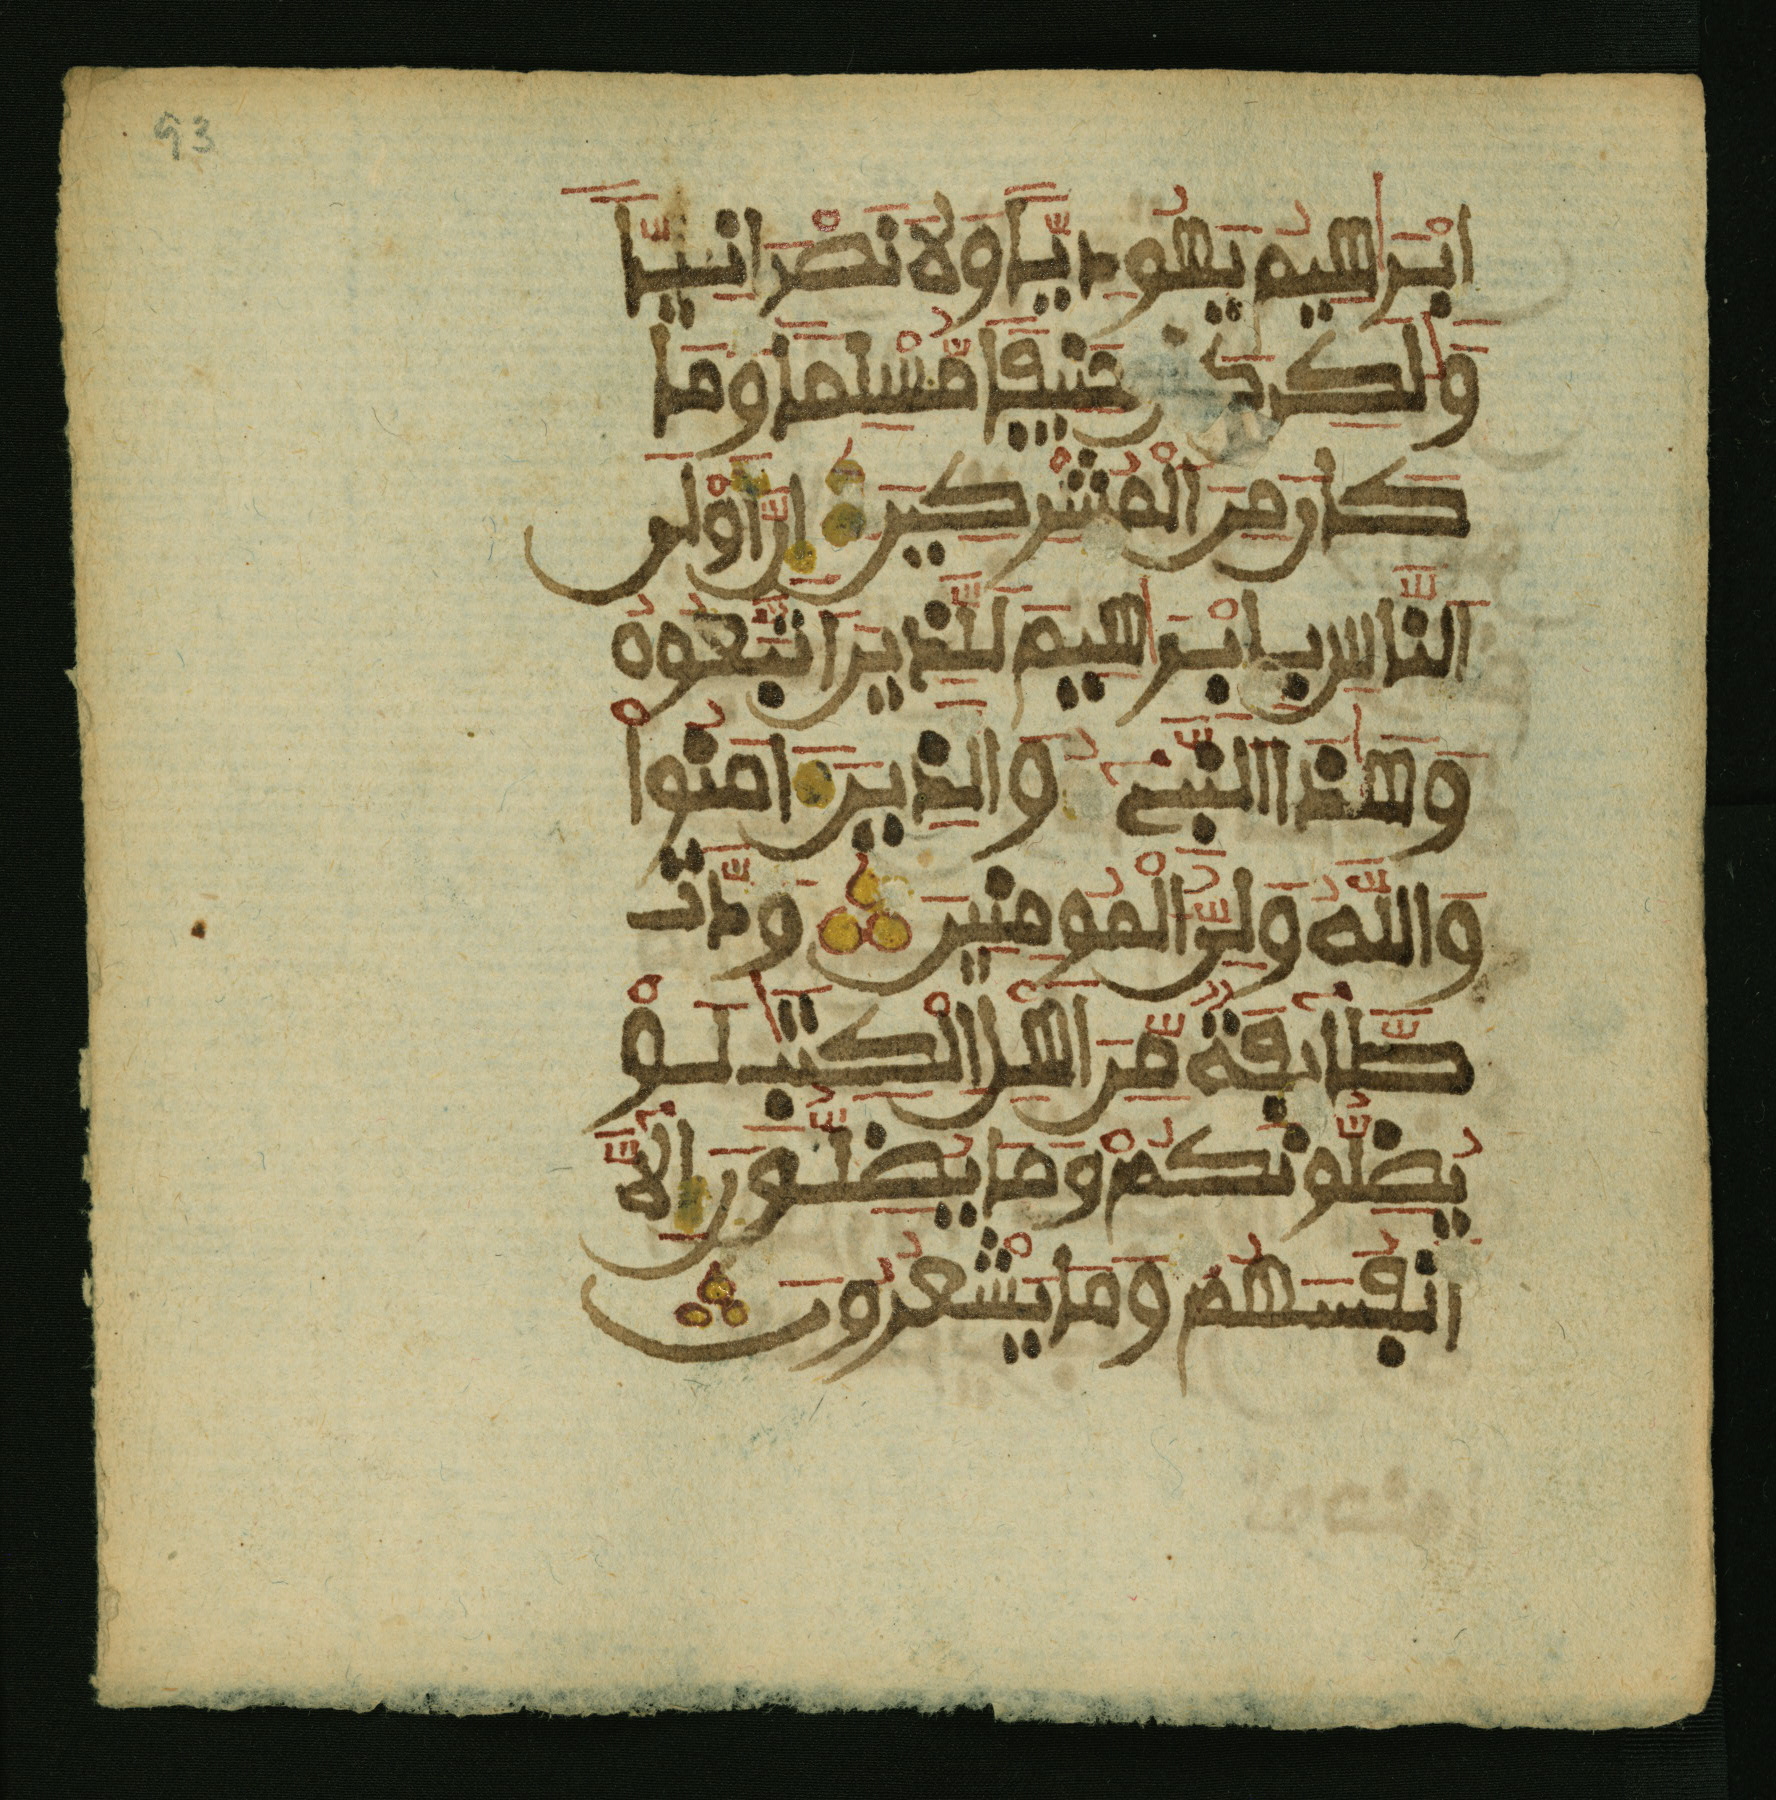 93
ابْرَٰهِيمُ يَهُودِيّٗا وَلَا نَصْرَانِيّٗا
وَلَٰكِن كَانَ حَنِيفٗا مُّسْلِمٗا وَمَا
كَانَ مِنَ الْمُشْرِكِينَ إِنَّ أَوْلَى
النَّاسِ بِإِبْرَٰهِيمَ لَلَّذِينَ اتَّبَعُوهُ
وَهَٰذَا النَّبِيءُ وَالَّذِينَ ءَامَنُواْ
وَاللَّهُ وَلِيُّ الْمُومِنِينَ وَدَّت
طَّآئِفَةٞ مِّنَ اَهْلِ الْكِتَٰبِ لَوْ
يُضِلُّونَكُمْ وَمَا يُضِلُّونَ إِلَّآ
أَنفُسَهُمْ وَمَا يَشْعُرُونَ